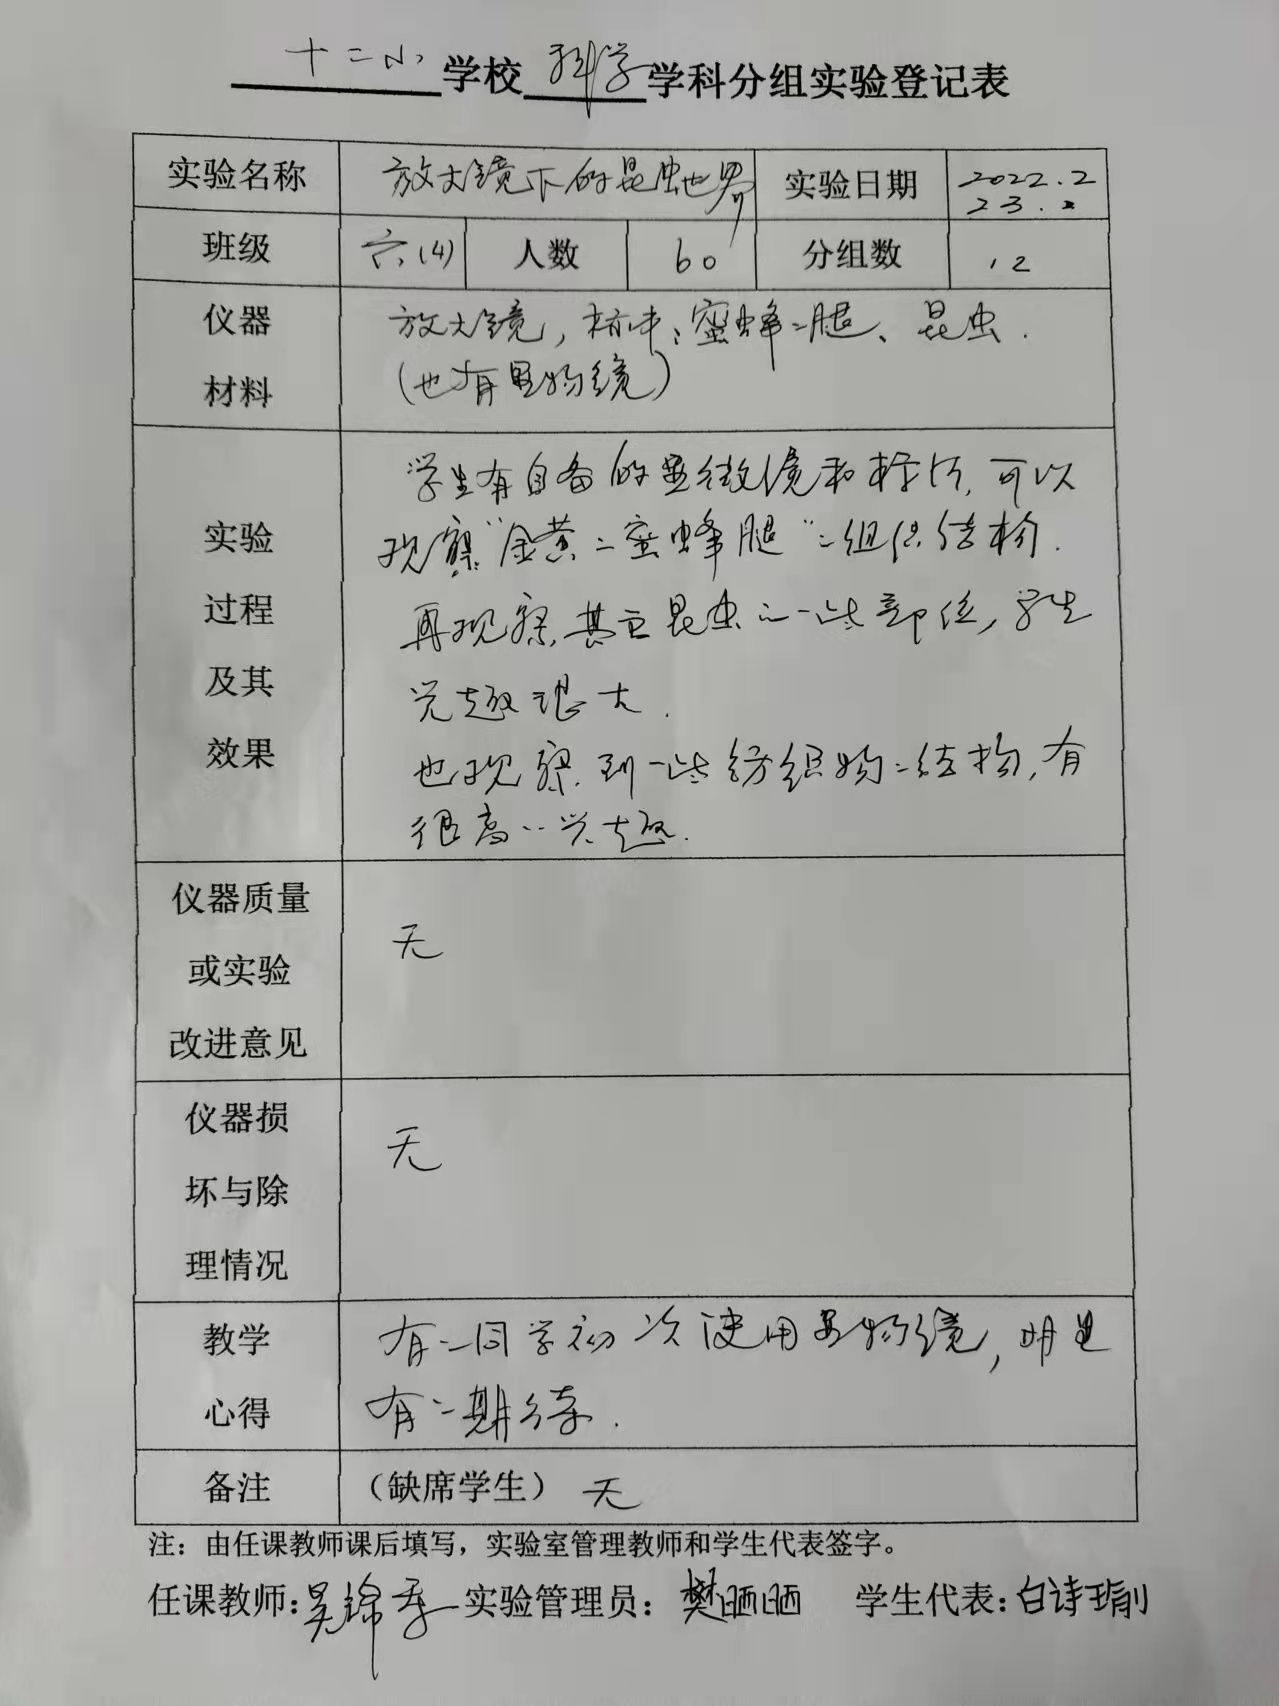 十二小学校科学学科分组实验登记表
实验名称 放大镜下的昆虫世界 实验日期 2022.2
23.
班级 六(4) 人数 60 分组数 12
仪器 放大镜，标本、蜜蜂腿、昆虫.
材料 (也有显物镜)
学生有自备的显微镜和标本,可以
实验 观察"蜜蜂腿"组织结构.
过程 再观察其它昆虫一些部位,学生
及其 兴趣很大.
效果 也观察到一些纺织物结构,有
很高兴趣.
仪器质量
或实验 无
改进意见
仪器损
坏与除 无
理情况
教学 有一同学初次使用显物镜,明显
心得 有期待.
备注 (缺席学生) 无
注：由任课教师课后填写，实验室管理教师和学生代表签字。
任课教师:吴锦 实验管理员：樊晒晒 学生代表:白诗瑜